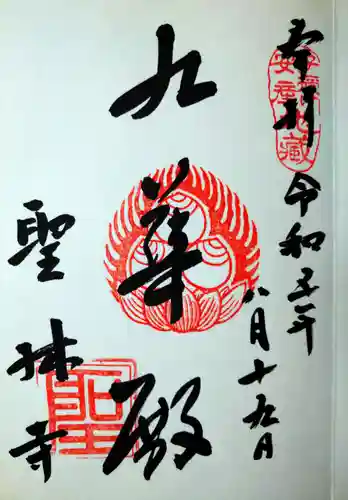 奉拝
令和五年
八月十九日
九華殿
聖林寺